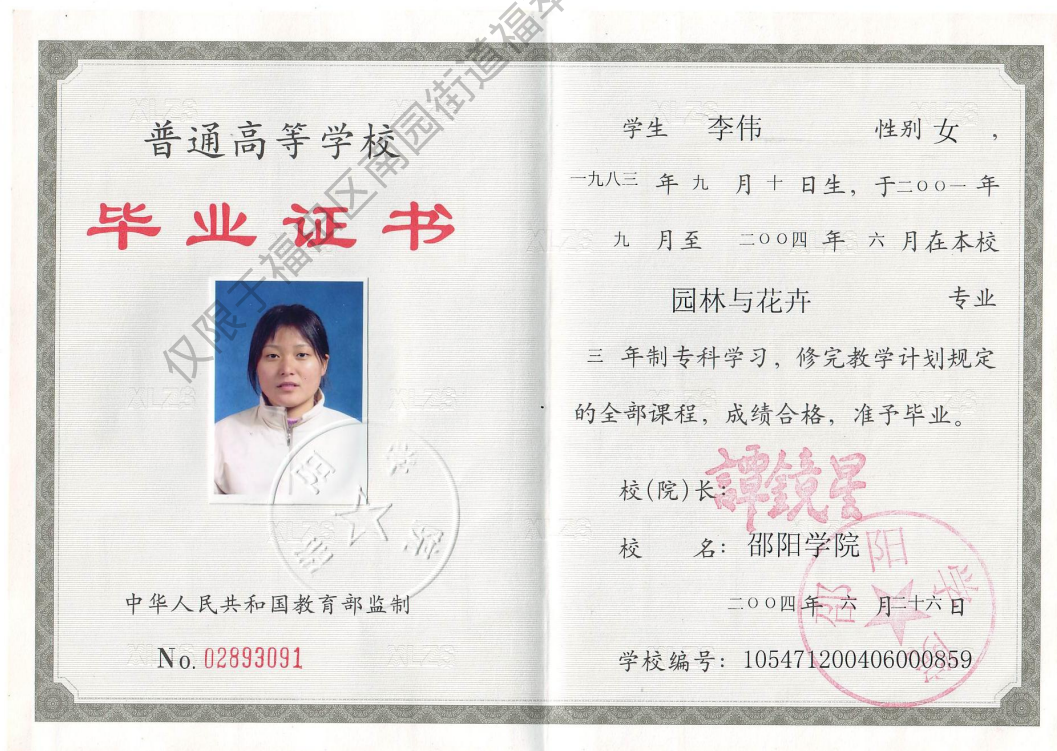 普通高等学校
毕业证书
中华人民共和国教育部监制
No. 02893091
仅限于福田区南园街道福华
学生 李伟 性别 女，
一九八三 年 九 月 十 日生，于二〇〇一 年
九 月至 二〇〇四 年 六 月在本校
园林与花卉 专业
三 年制专科学习，修完教学计划规定
的全部课程，成绩合格，准予毕业。
校(院)长：譚鏡星
校 名：邵阳学院
二〇〇四年 六 月二十六日
学校编号：105471200406000859
邵阳学院